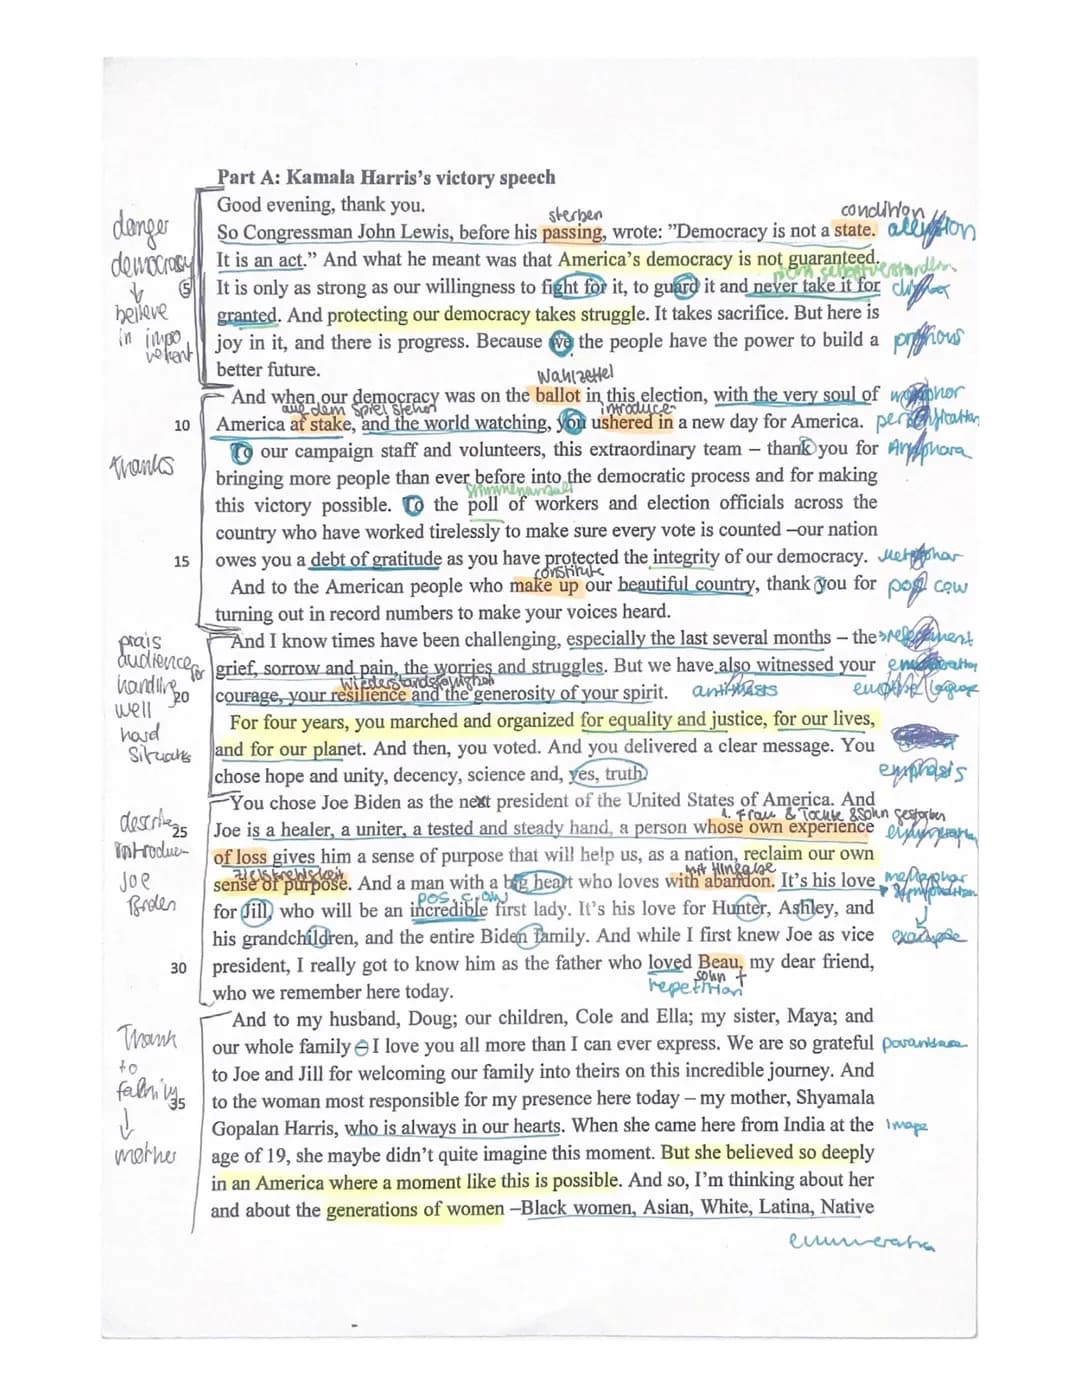 Part A: Kamala Harris's victory speech
Good evening, thank you.
sterben
condition
So Congressman John Lewis, before his passing, wrote: "Democracy is not a state.
It is an act." And what he meant was that America's democracy is not guaranteed.
5
It is only as strong as our willingness to fight for it, to guard it and never take it for
granted. And protecting our democracy takes struggle. It takes sacrifice. But here is
joy in it, and there is progress. Because we the people have the power to build a
better future.
danger
democracy
believe
in
Wahlzettel
And when our democracy was on the ballot in this election, with the very soul of
auf dem Spiel stehen
introduce
10 America at stake, and the world watching, you ushered in a new day for America.
To our campaign staff and volunteers, this extraordinary team – thank you for
Thanks
bringing more people than ever before into the democratic process and for making
this victory possible. To the poll of workers and election officials across the
country who have worked tirelessly to make sure every vote is counted –our nation
15 owes you a debt of gratitude as you have protected the integrity of our democracy.
constitute
And to the American people who make up our beautiful country, thank you for
turning out in record numbers to make your voices heard.
And I know times have been challenging, especially the last several months – the
grief, sorrow and pain, the worries and struggles. But we have also witnessed your
20 courage, your resilience and the generosity of your spirit.
antithesis
prais
audience for
handling
well
hard
For four years, you marched and organized for equality and justice, for our lives,
and for our planet. And then, you voted. And you delivered a clear message. You
chose hope and unity, decency, science and, yes, truth
emphasis
You chose Joe Biden as the next president of the United States of America. And
1. Frau & Tochter & Sohn gestorben
25 Joe is a healer, a uniter, a tested and steady hand, a person whose own experience
of loss gives him a sense of purpose that will help us, as a nation, reclaim our own
mit Hingabe
sense of purpose. And a man with a big heart who loves with abandon. It's his love
for Jill, who will be an incredible first lady. It's his love for Hunter, Ashley, and
his grandchildren, and the entire Biden family. And while I first knew Joe as vice
example
30 president, I really got to know him as the father who loved Beau, my dear friend,
who we remember here today.
repetition
Sohn †
describe
Joe
And to my husband, Doug; our children, Cole and Ella; my sister, Maya; and
our whole family – I love you all more than I can ever express. We are so grateful
to Joe and Jill for welcoming our family into theirs on this incredible journey. And
35 to the woman most responsible for my presence here today – my mother, Shyamala
Gopalan Harris, who is always in our hearts. When she came here from India at the
Image
age of 19, she maybe didn't quite imagine this moment. But she believed so deeply
in an America where a moment like this is possible. And so, I'm thinking about her
and about the generations of women –Black women, Asian, White, Latina, Native
Thank
to
mother